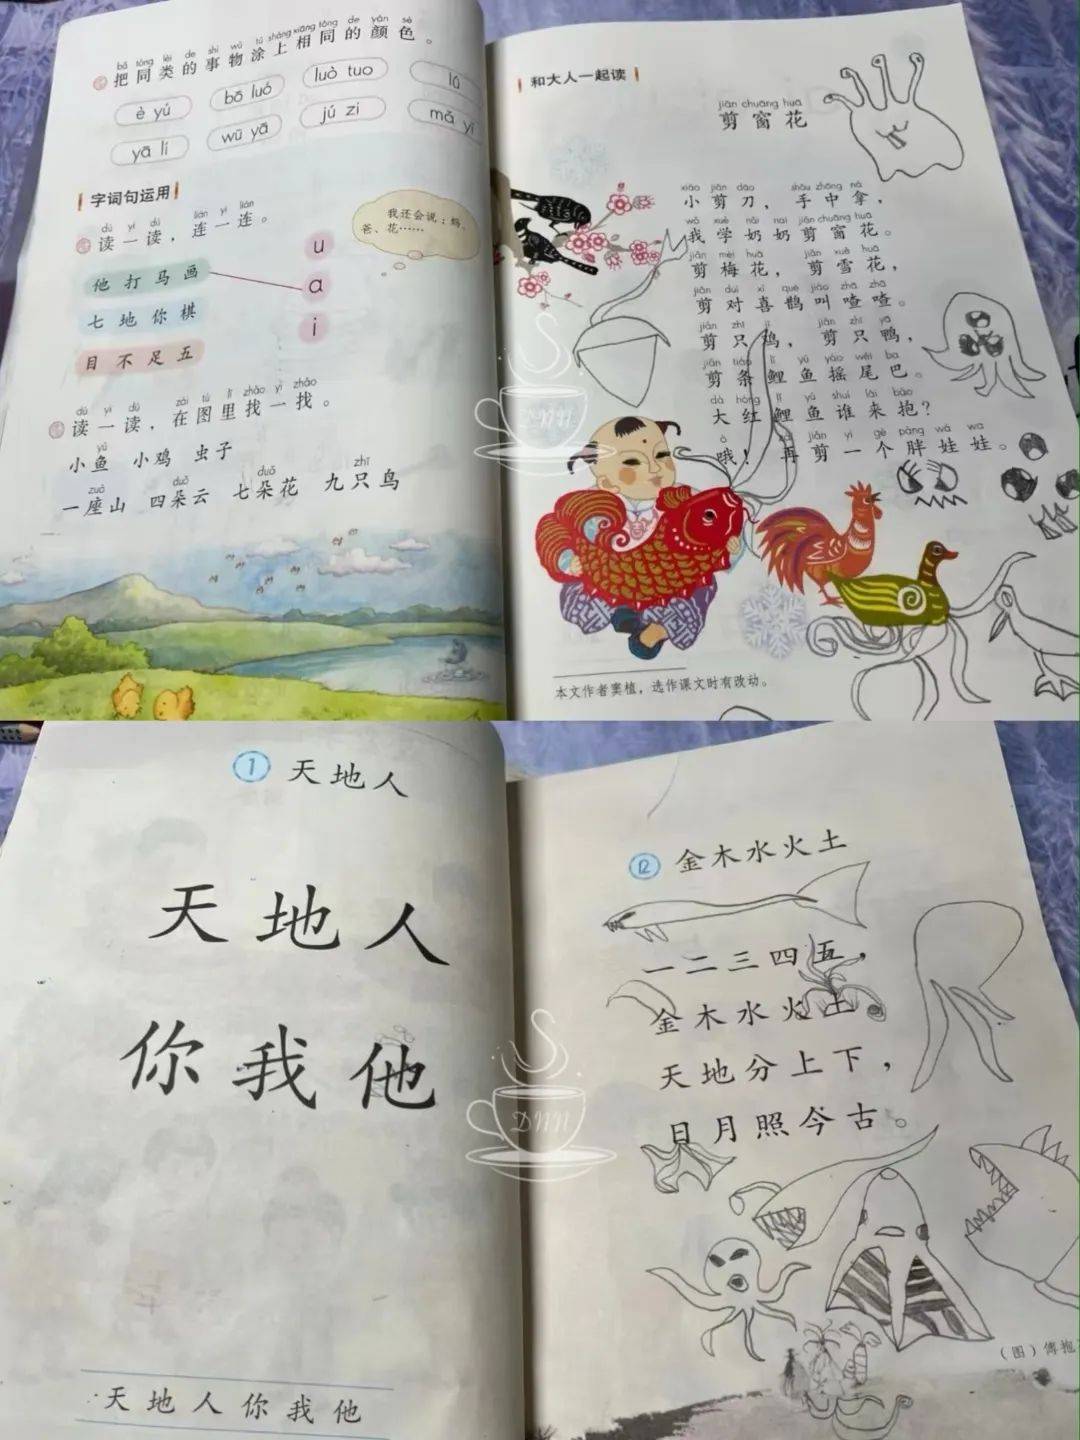 bǎ tóng lèi de shì wù tú shàng xiāng tóng de yán sè
把同类的事物涂上相同的颜色。
è yú
bō luó
luò tuo
lú
yā lí
wū yā
jú zi
mǎ yǐ
字词句运用
dú yi dú lián yi lián
读一读，连一连。
我还会说：妈、
爸、花……
他打马画
七地你棋
目不足五
u
a
i
dú yi dú zài tú lǐ zhǎo yi zhǎo
读一读，在图里找一找。
yú
小鱼 小鸡 虫子
zuò duǒ duǒ zhī
一座山 四朵云 七朵花 九只鸟
和大人一起读
jiǎn chuāng huā
剪窗花
xiǎo jiǎn dāo shǒu zhōng ná
小剪刀，手中拿，
wǒ xué nǎi nai jiǎn chuāng huā
我学奶奶剪窗花。
jiǎn méi huā jiǎn xuě huā
剪梅花，剪雪花，
jiǎn duì xǐ què jiào zhā zhā
剪对喜鹊叫喳喳。
jiǎn zhī jī jiǎn zhī yā
剪只鸡，剪只鸭，
jiǎn tiáo lǐ yú yáo wěi ba
剪条鲤鱼摇尾巴。
dà hóng lǐ yú shuí lái bào
大红鲤鱼谁来抱？
ò zài jiǎn yí gè pàng wá wa
哦！再剪一个胖娃娃。
本文作者窦植，选作课文时有改动。
1 天地人
天地人
你我他
天地人你我他
2 金木水火土
一二三四五，
金木水火土。
天地分上下，
日月照今古。
（图）傅抱
DNN
DNN